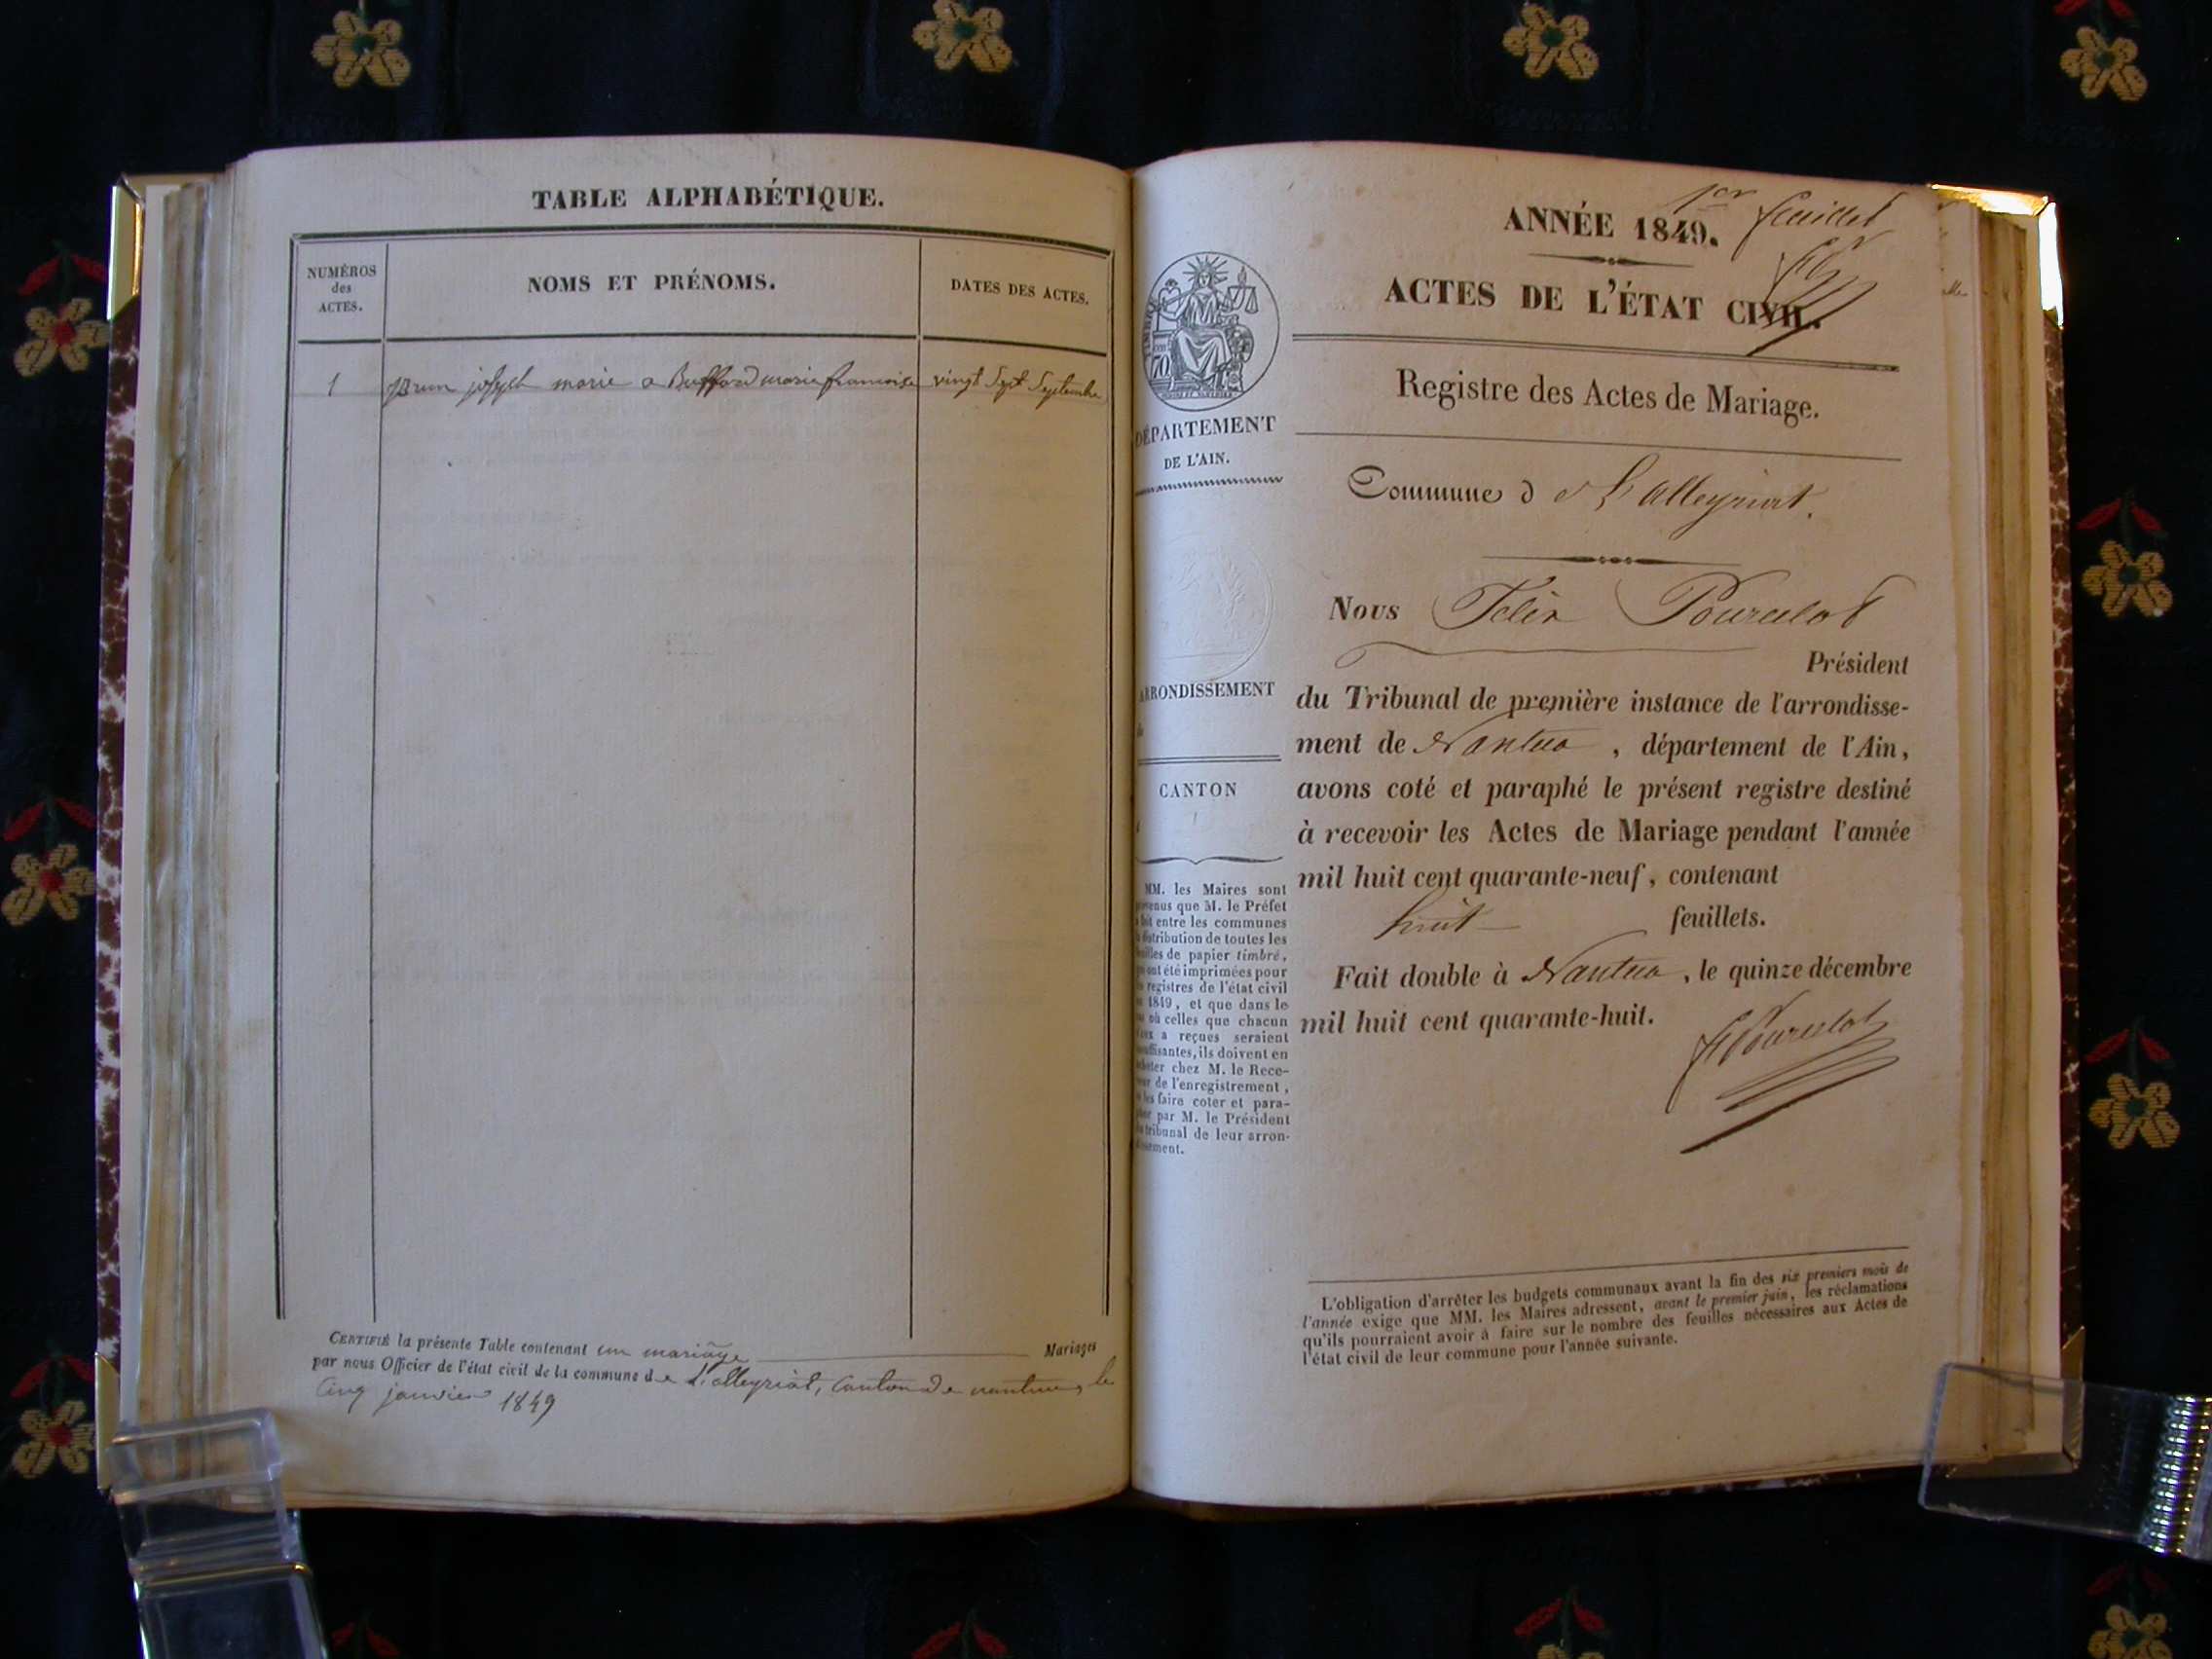 TABLE ALPHABÉTIQUE.
NUMÉROS
des
ACTES.
NOMS ET PRÉNOMS.
DATES DES ACTES.
1 Brun joseph marie a Buffard marie francoise vingt Sept Septembre
CERTIFIÉ la présente Table contenant un mariage Mariages
par nous Officier de l'état civil de la commune de L'alleyriat, Canton de nantua, le
Cinq janvier 1849
1er feuillet
ANNÉE 1849.
ACTES DE L'ÉTAT CIVIL.
Registre des Actes de Mariage.
TIMBRE
70
DÉPARTEMENT
DE L'AIN.
Commune d e L'alleyriat.
ARRONDISSEMENT
CANTON
MM. les Maires sont
que M. le Préfet
entre les communes
distribution de toutes les
de papier timbré,
ont été imprimées pour
registres de l'état civil
1849, et que dans le
où celles que chacun
a reçues seraient
ils doivent en
chez M. le Rece-
de l'enregistrement,
les faire coter et para-
par M. le Président
tribunal de leur arron-
Nous Félix Pourcelot
Président
du Tribunal de première instance de l'arrondisse-
ment de Nantua, département de l'Ain,
avons coté et paraphé le présent registre destiné
à recevoir les Actes de Mariage pendant l'année
mil huit cent quarante-neuf, contenant
huit feuillets.
Fait double à Nantua, le quinze décembre
mil huit cent quarante-huit.
F Pourcelot
L'obligation d'arrêter les budgets communaux avant la fin des six premiers mois de
l'année exige que MM. les Maires adressent, avant le premier juin, les réclamations
qu'ils pourraient avoir à faire sur le nombre des feuilles nécessaires aux Actes de
l'état civil de leur commune pour l'année suivante.